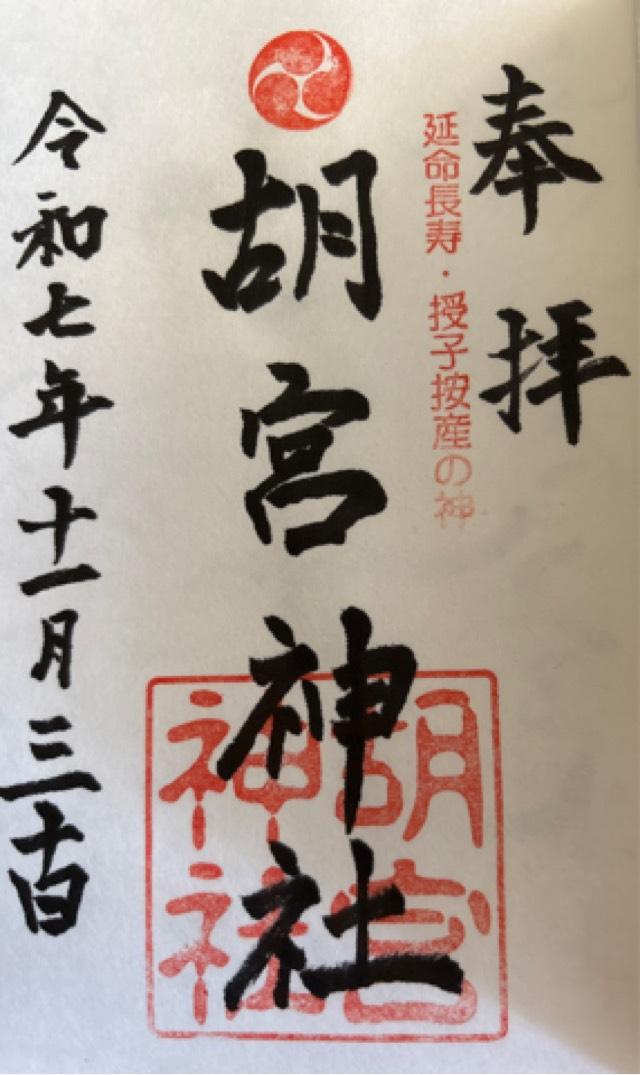 奉拝
延命長寿・授子按産の神
胡宮神社
胡宮
神社
令和七年十一月三十日